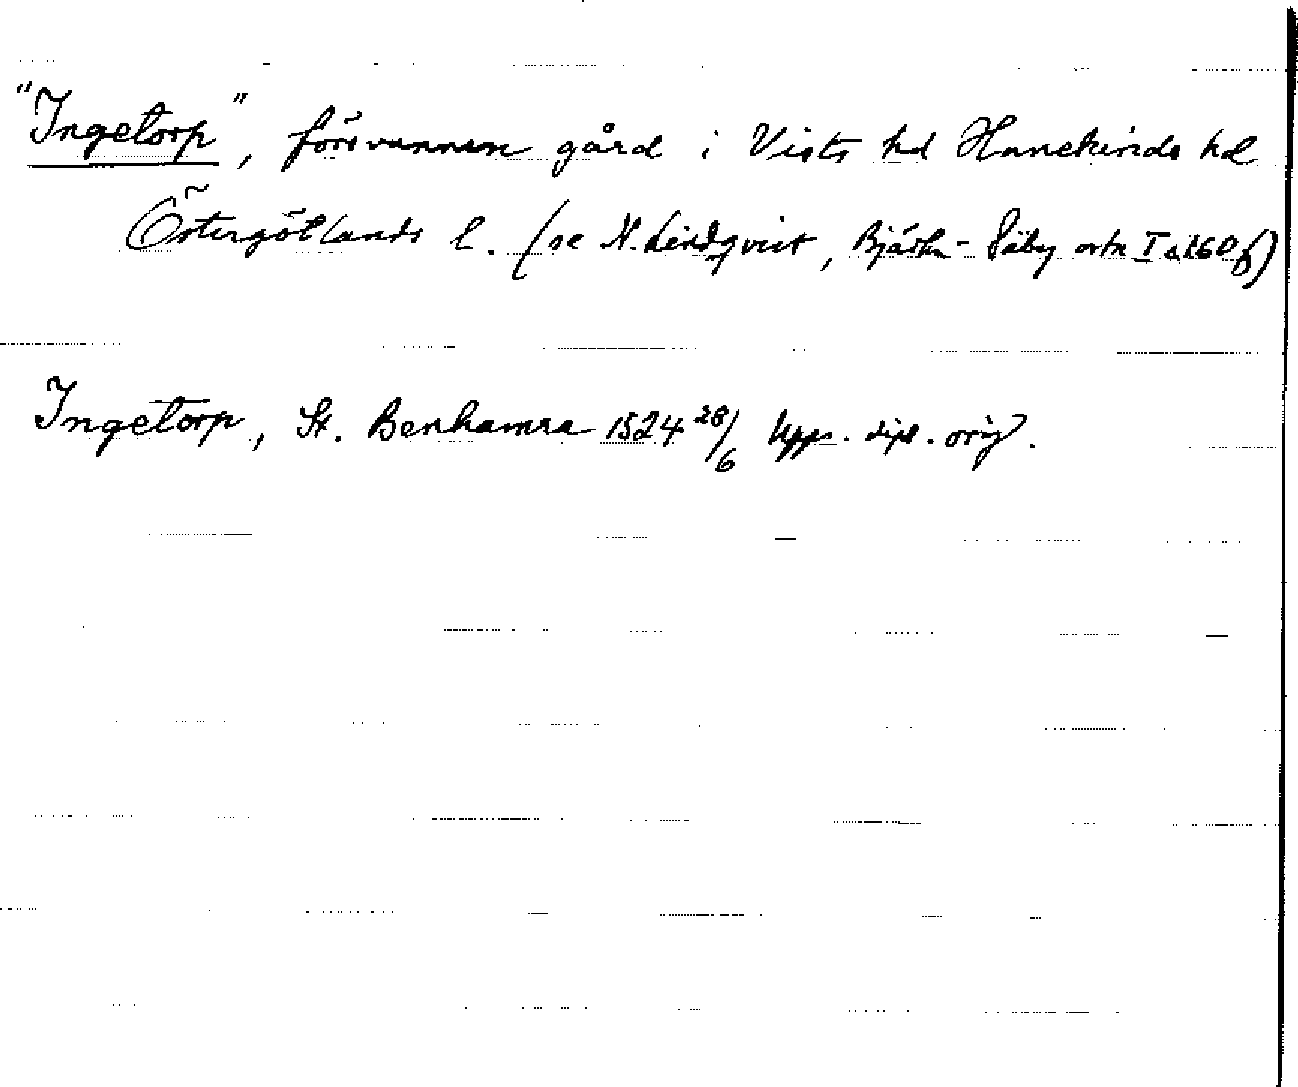 "Ingetorp", försvunnen gård i Vists hd Hanekinds hd
Östergötlands l. (se N. Lindqvist, Bjärka-Säby ortn I s 160 f)
Ingetorp, St. Benhamra 1524 28/6 Upps. dipl. orig.